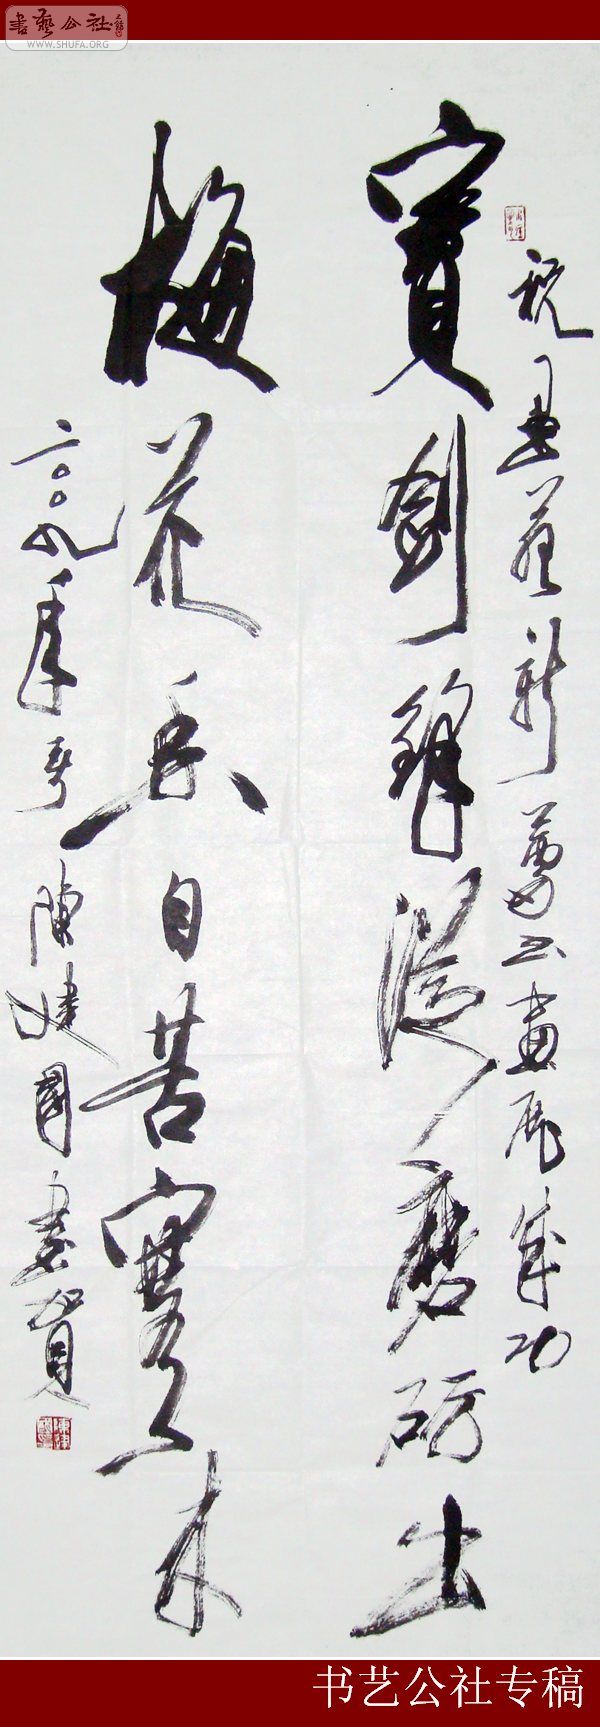 書藝公社
WWW.SHUFA.ORG
祝墨苑新蕾书畫展成功
寶劍鋒從磨礪出
梅花香自苦寒来
二〇〇九年夏 陳建國書賀
书艺公社专稿